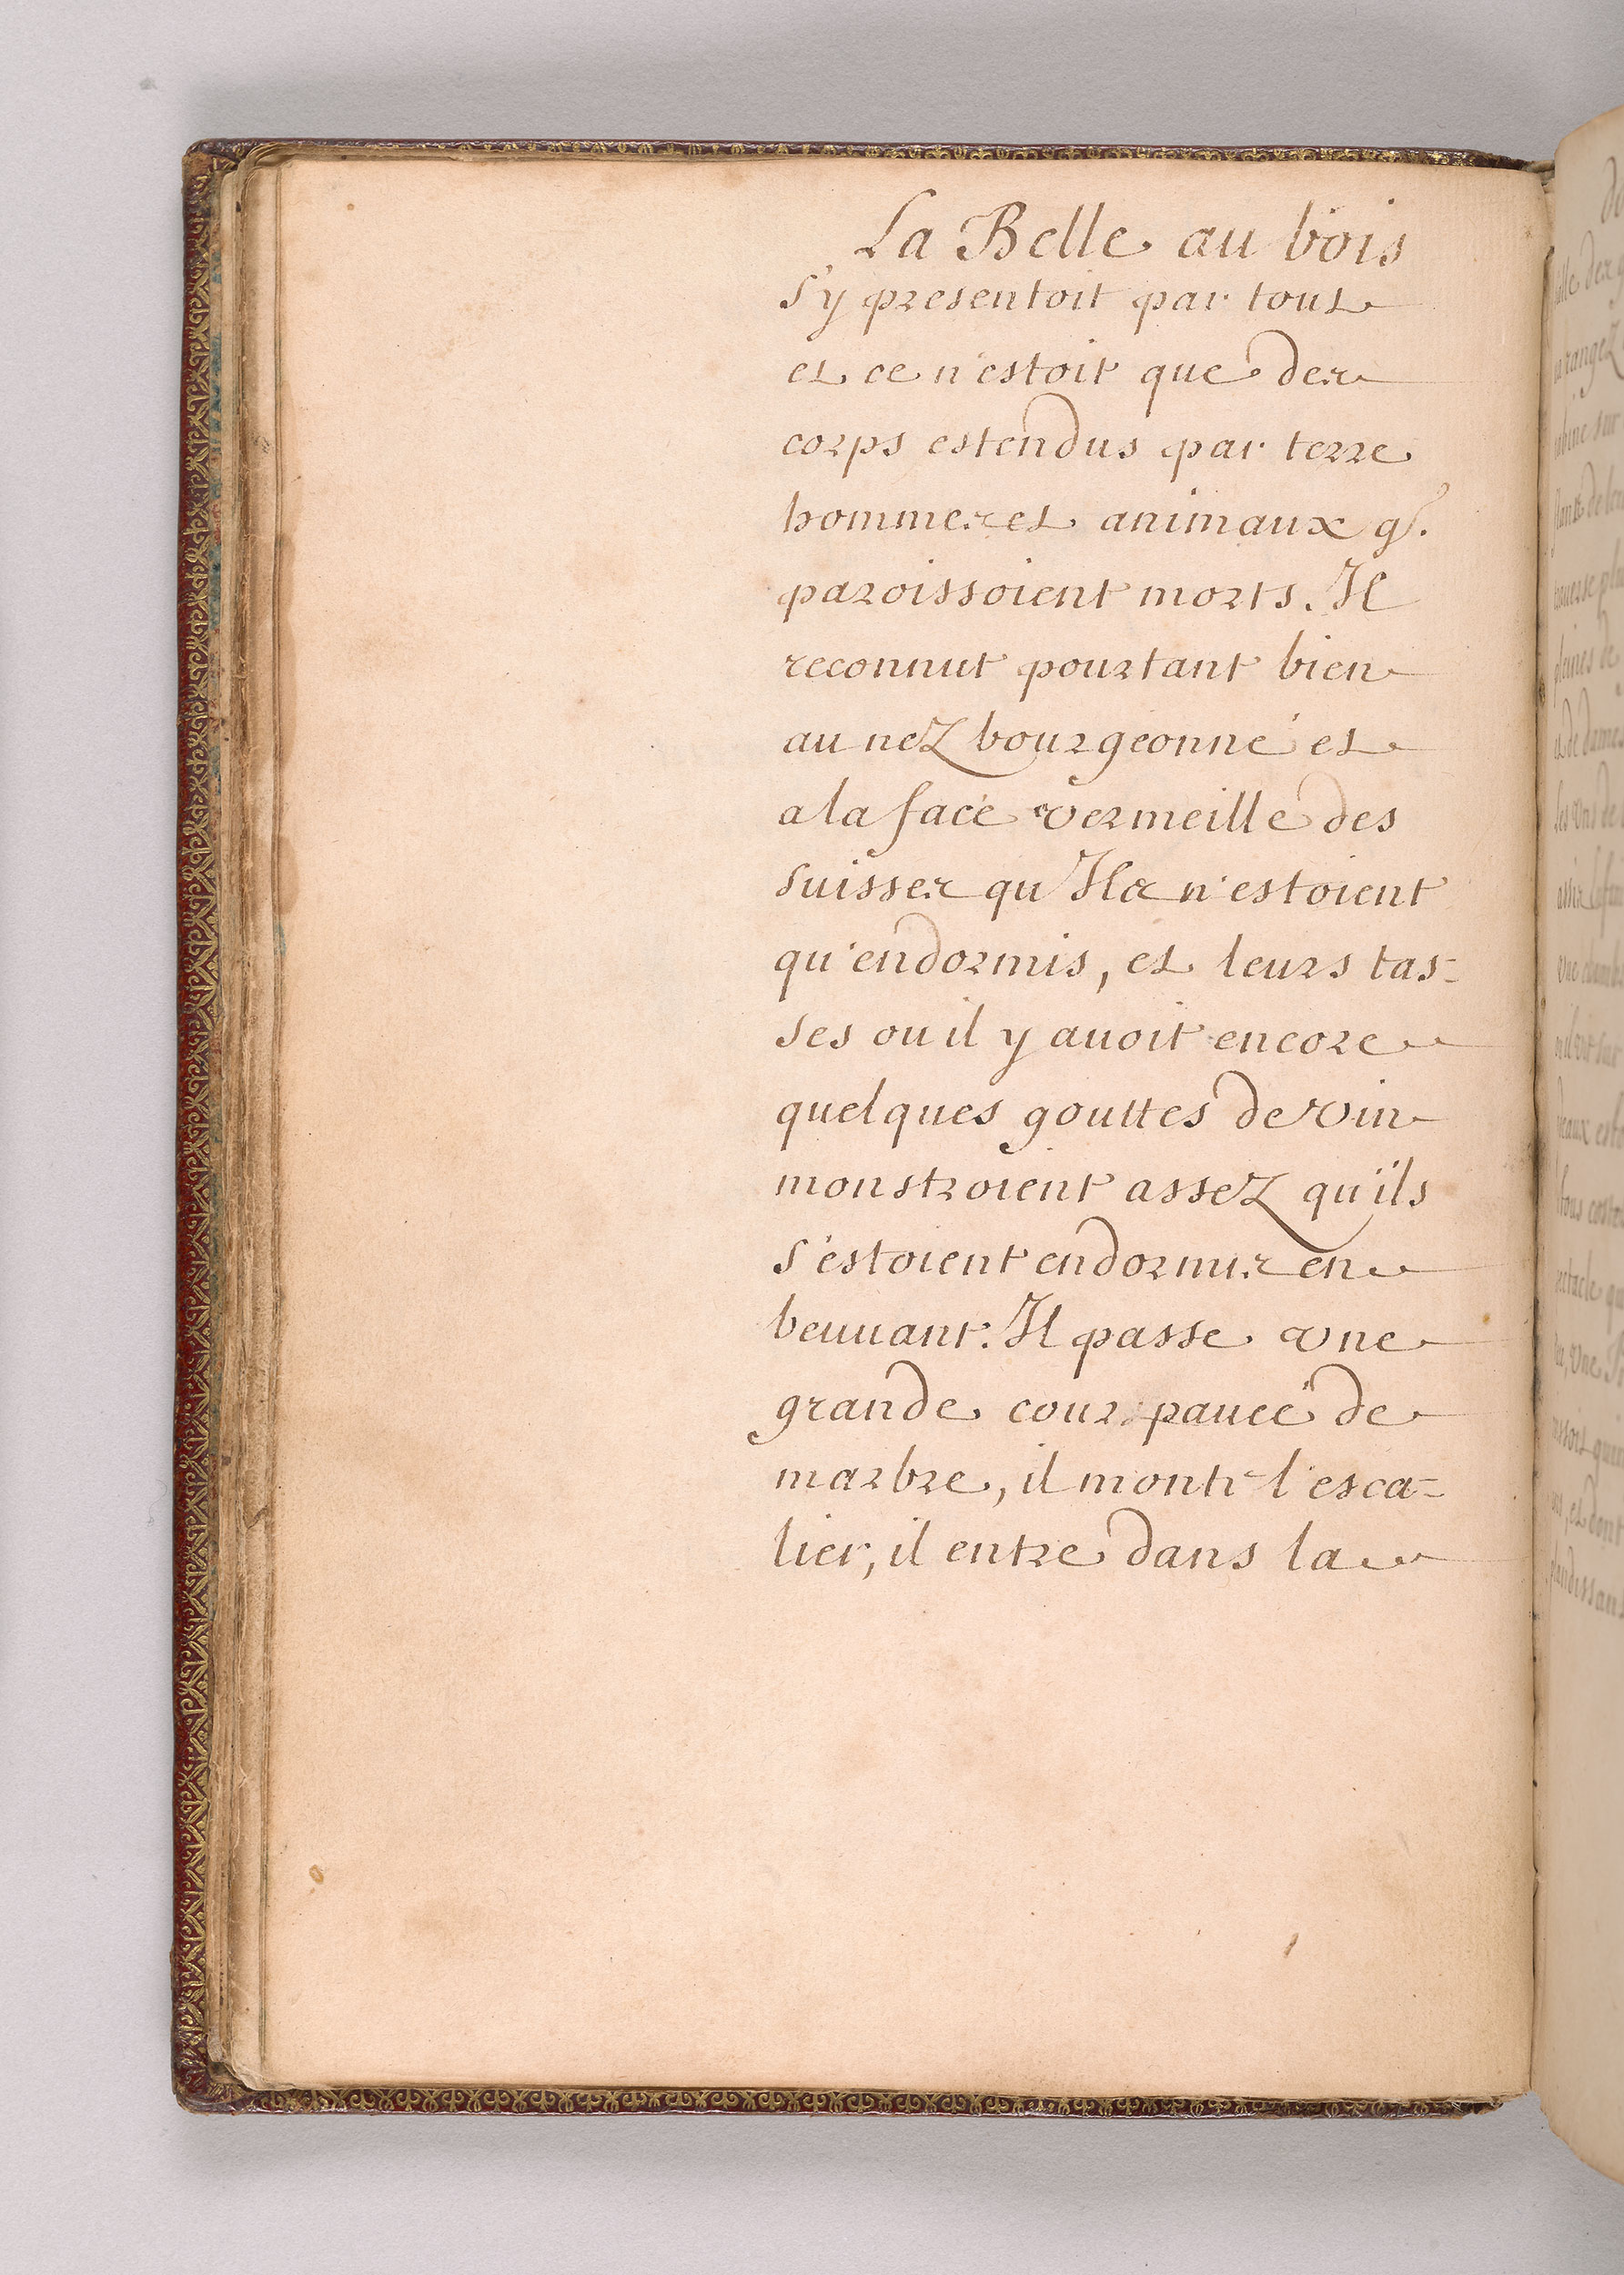 La Belle au bois
s'y presentoit par tout
et ce n'estoit que des
corps estendus par terre
hommes et animaux q.
paroissoient morts. Il
reconnut pourtant bien
au nez bourgeonné et
a la face vermeille des
suisses qu'Ils n'estoient
qu'endormis, et leurs tas-
ses ou il y auoit encore
quelques gouttes de vin
monstroient assez qu'ils
s'estoient endormis en
beuuant. Il passe vne
grande cour pauée de
marbre, il monte l'esca-
lier, il entre dans la